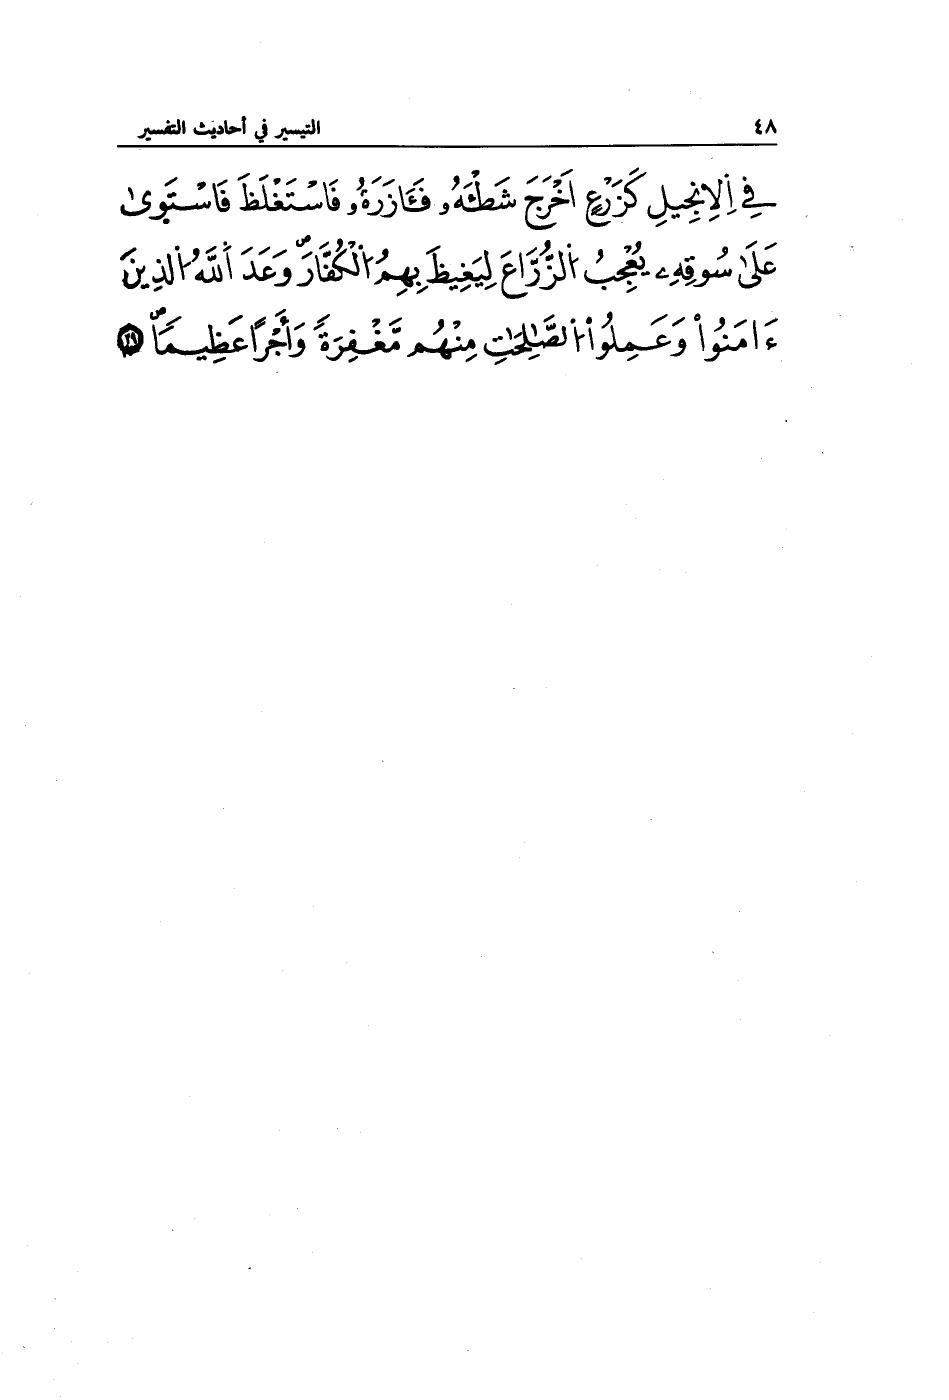 ٤٨ التيسير في أحاديث التفسير
فِے اِلِانجِيلِ كَزَرْعٍ اَخْرَجَ شَطْـَٔهُۥ فَـَٔازَرَهُۥ فَاسْتَغْلَظَ فَاسْتَوِىٰ
عَلَىٰ سُوقِهِۦ يُعْجِبُ اُلزُّرَّاعَ لِيَغِيظَ بِهِمُ اُلْكُفَّارَۖ وَعَدَ اَللَّهُ اُلذِينَ
ءَامَنُواْ وَعَمِلُواْ اُلصَّٰلِحَٰتِ مِنْهُم مَّغْفِرَةً وَأَجْراً عَظِيماًۖ ٢٩